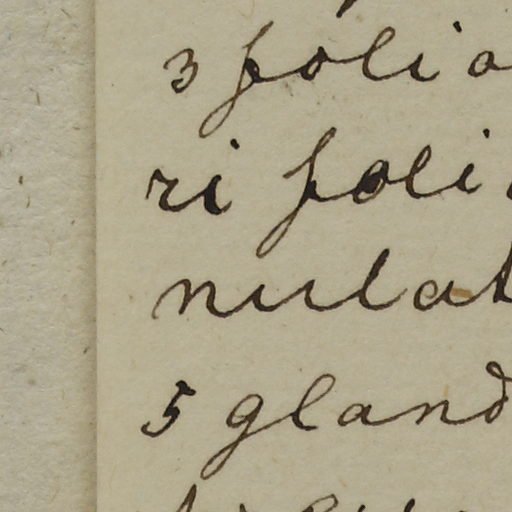 3 folia
ri foli
nulat
5 gland